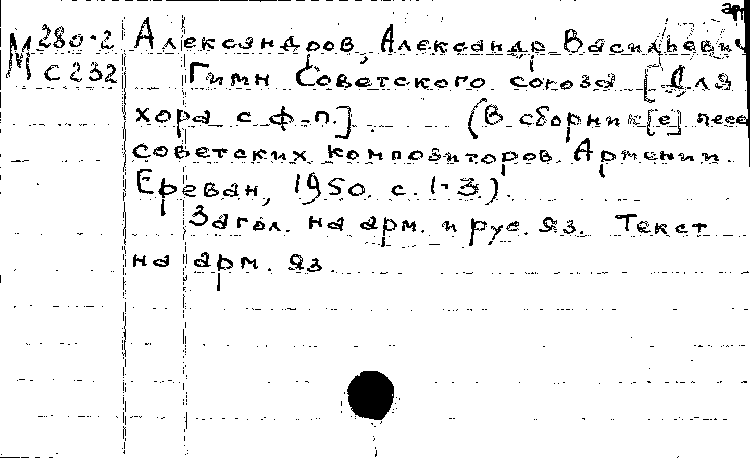 арм
М 280-2 Александров, Александр Васильевич
С 232 Гимн Советского союза [Для
хора с ф-п.] (В сборник[е] песе
советских композиторов Армении.
Ереван, 1950. с. 1-3).
Загол. на арм. и рус. яз. Текст
на арм. яз.